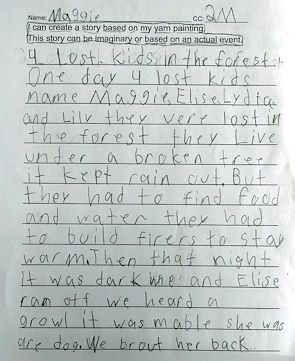 Name: Maggie cc: 2M
I can create a story based on my yarn painting.
This story can be imaginary or based on an actual event.
4 Lost Kids in the forest
One day 4 lost kids
name Maggie, Elise, Lydia
and Lily they were lost in
the forest they Live
under a broken tree
it kept rain out. But
they had to find food
and water they had
to build firers to stay
warm. Then that night
it was dark and Elise
ran off we heard a
growl it was mable she was
are dog. We brout her back.